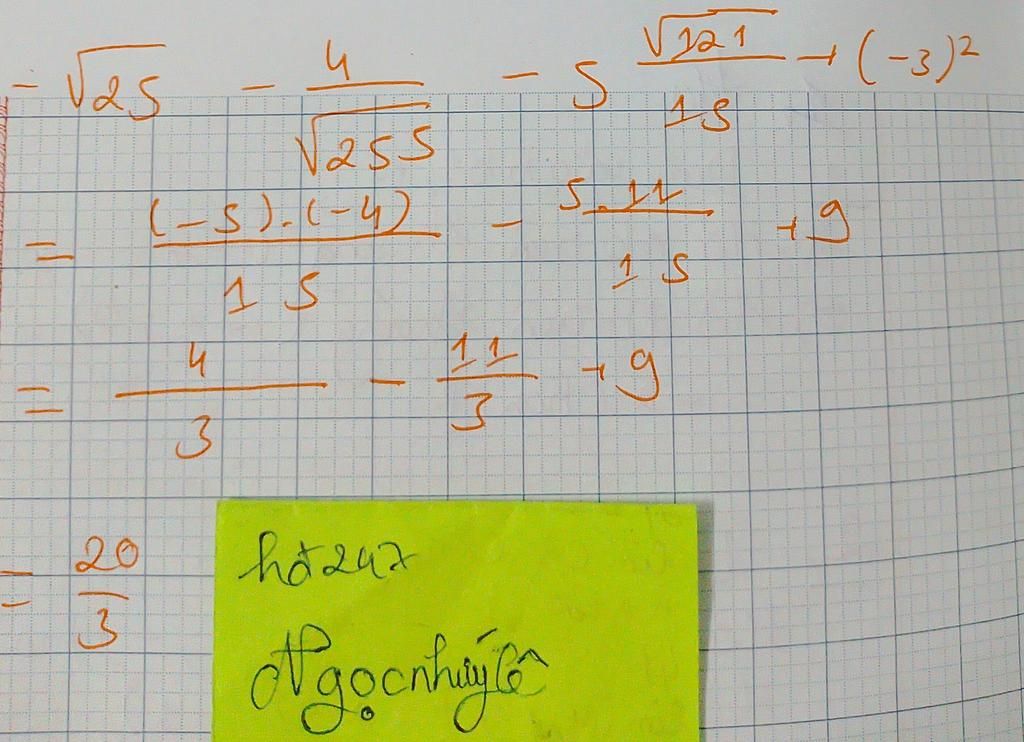 - √25 - 4/√255 - 5 √121/15 + (-3)²
= (-5).(-4)/15 - 5.11/15 + 9
= 4/3 - 11/3 + 9
= 20/3
hđ247
Ngọcnhưýlê